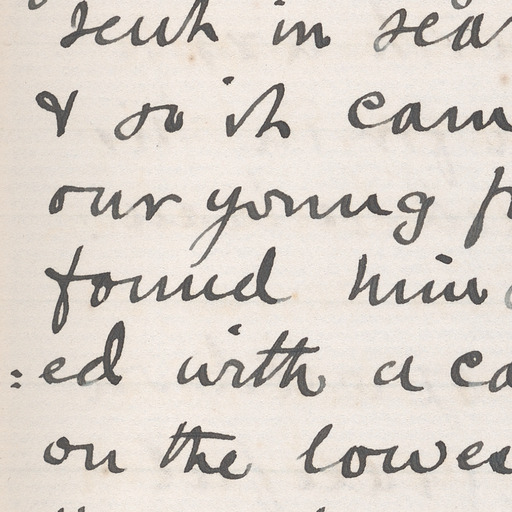 sent in sea
& so it cam
our young f
found him
:ed with a ca
on the lowes